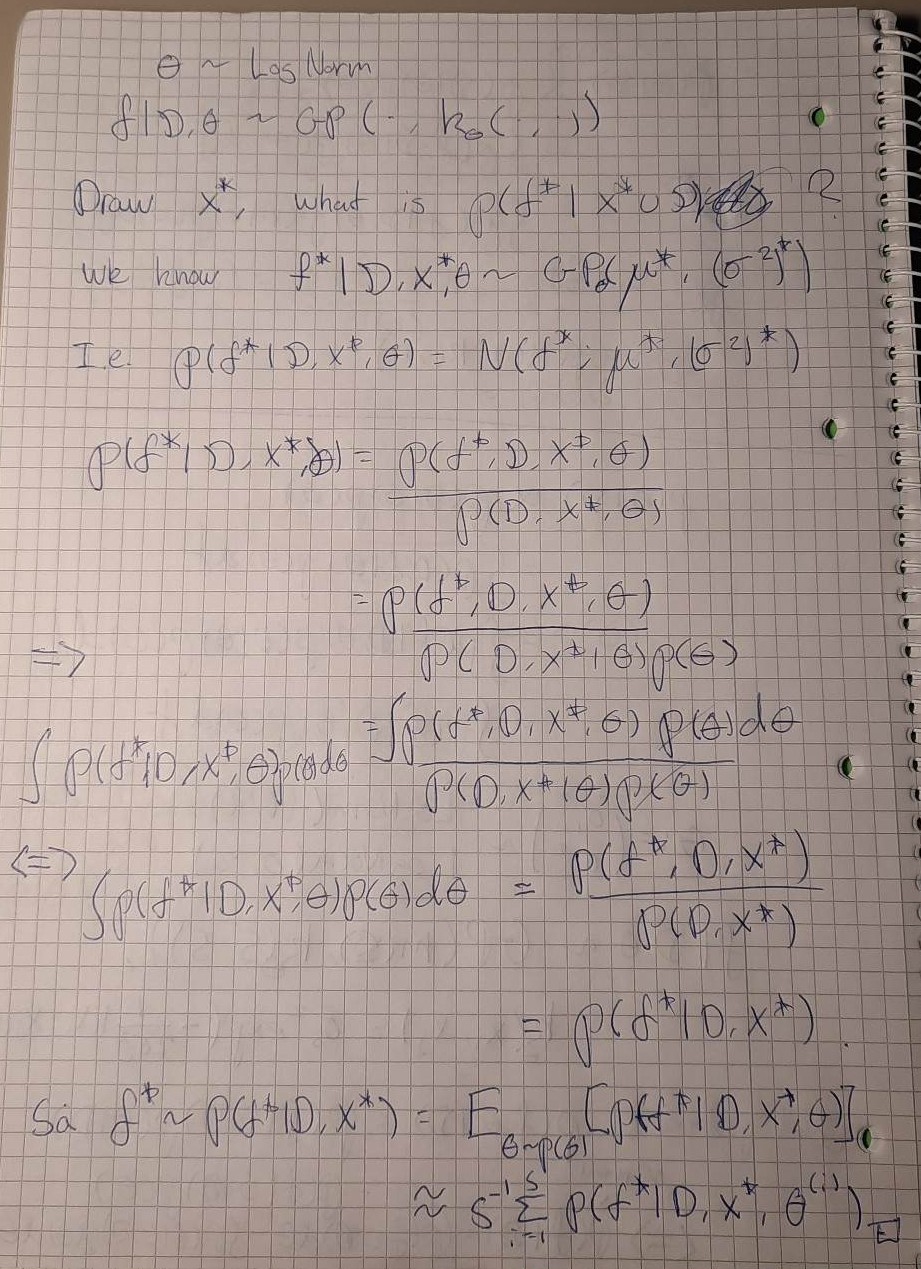 θ ~ LogNorm
f|D,θ ~ GP(·, k_θ(·,·))
Draw x*, what is p(f*|x* ∪ D) ?
We know f*|D,x*,θ ~ GP(μ*, (σ²)*)
I.e. p(f*|D,x*,θ) = N(f*; μ*, (σ²)*)
p(f*|D,x*,θ) = p(f*,D,x*,θ)
p(D,x*,θ)
= p(f*,D,x*,θ)
⇒ p(D,x*|θ)p(θ)
∫p(f*|D,x*,θ)p(θ)dθ = ∫p(f*,D,x*,θ) p(θ)dθ
p(D,x*|θ)p(θ)
⇔ ∫p(f*|D,x*,θ)p(θ)dθ = p(f*,D,x*)
p(D,x*)
= p(f*|D,x*).
Så f* ~ p(f*|D,x*) = E_{θ~p(θ)} [p(f*|D,x*,θ)]
≈ S⁻¹ Σ_{i=1}^{S} p(f*|D,x*,θ^{(i)})